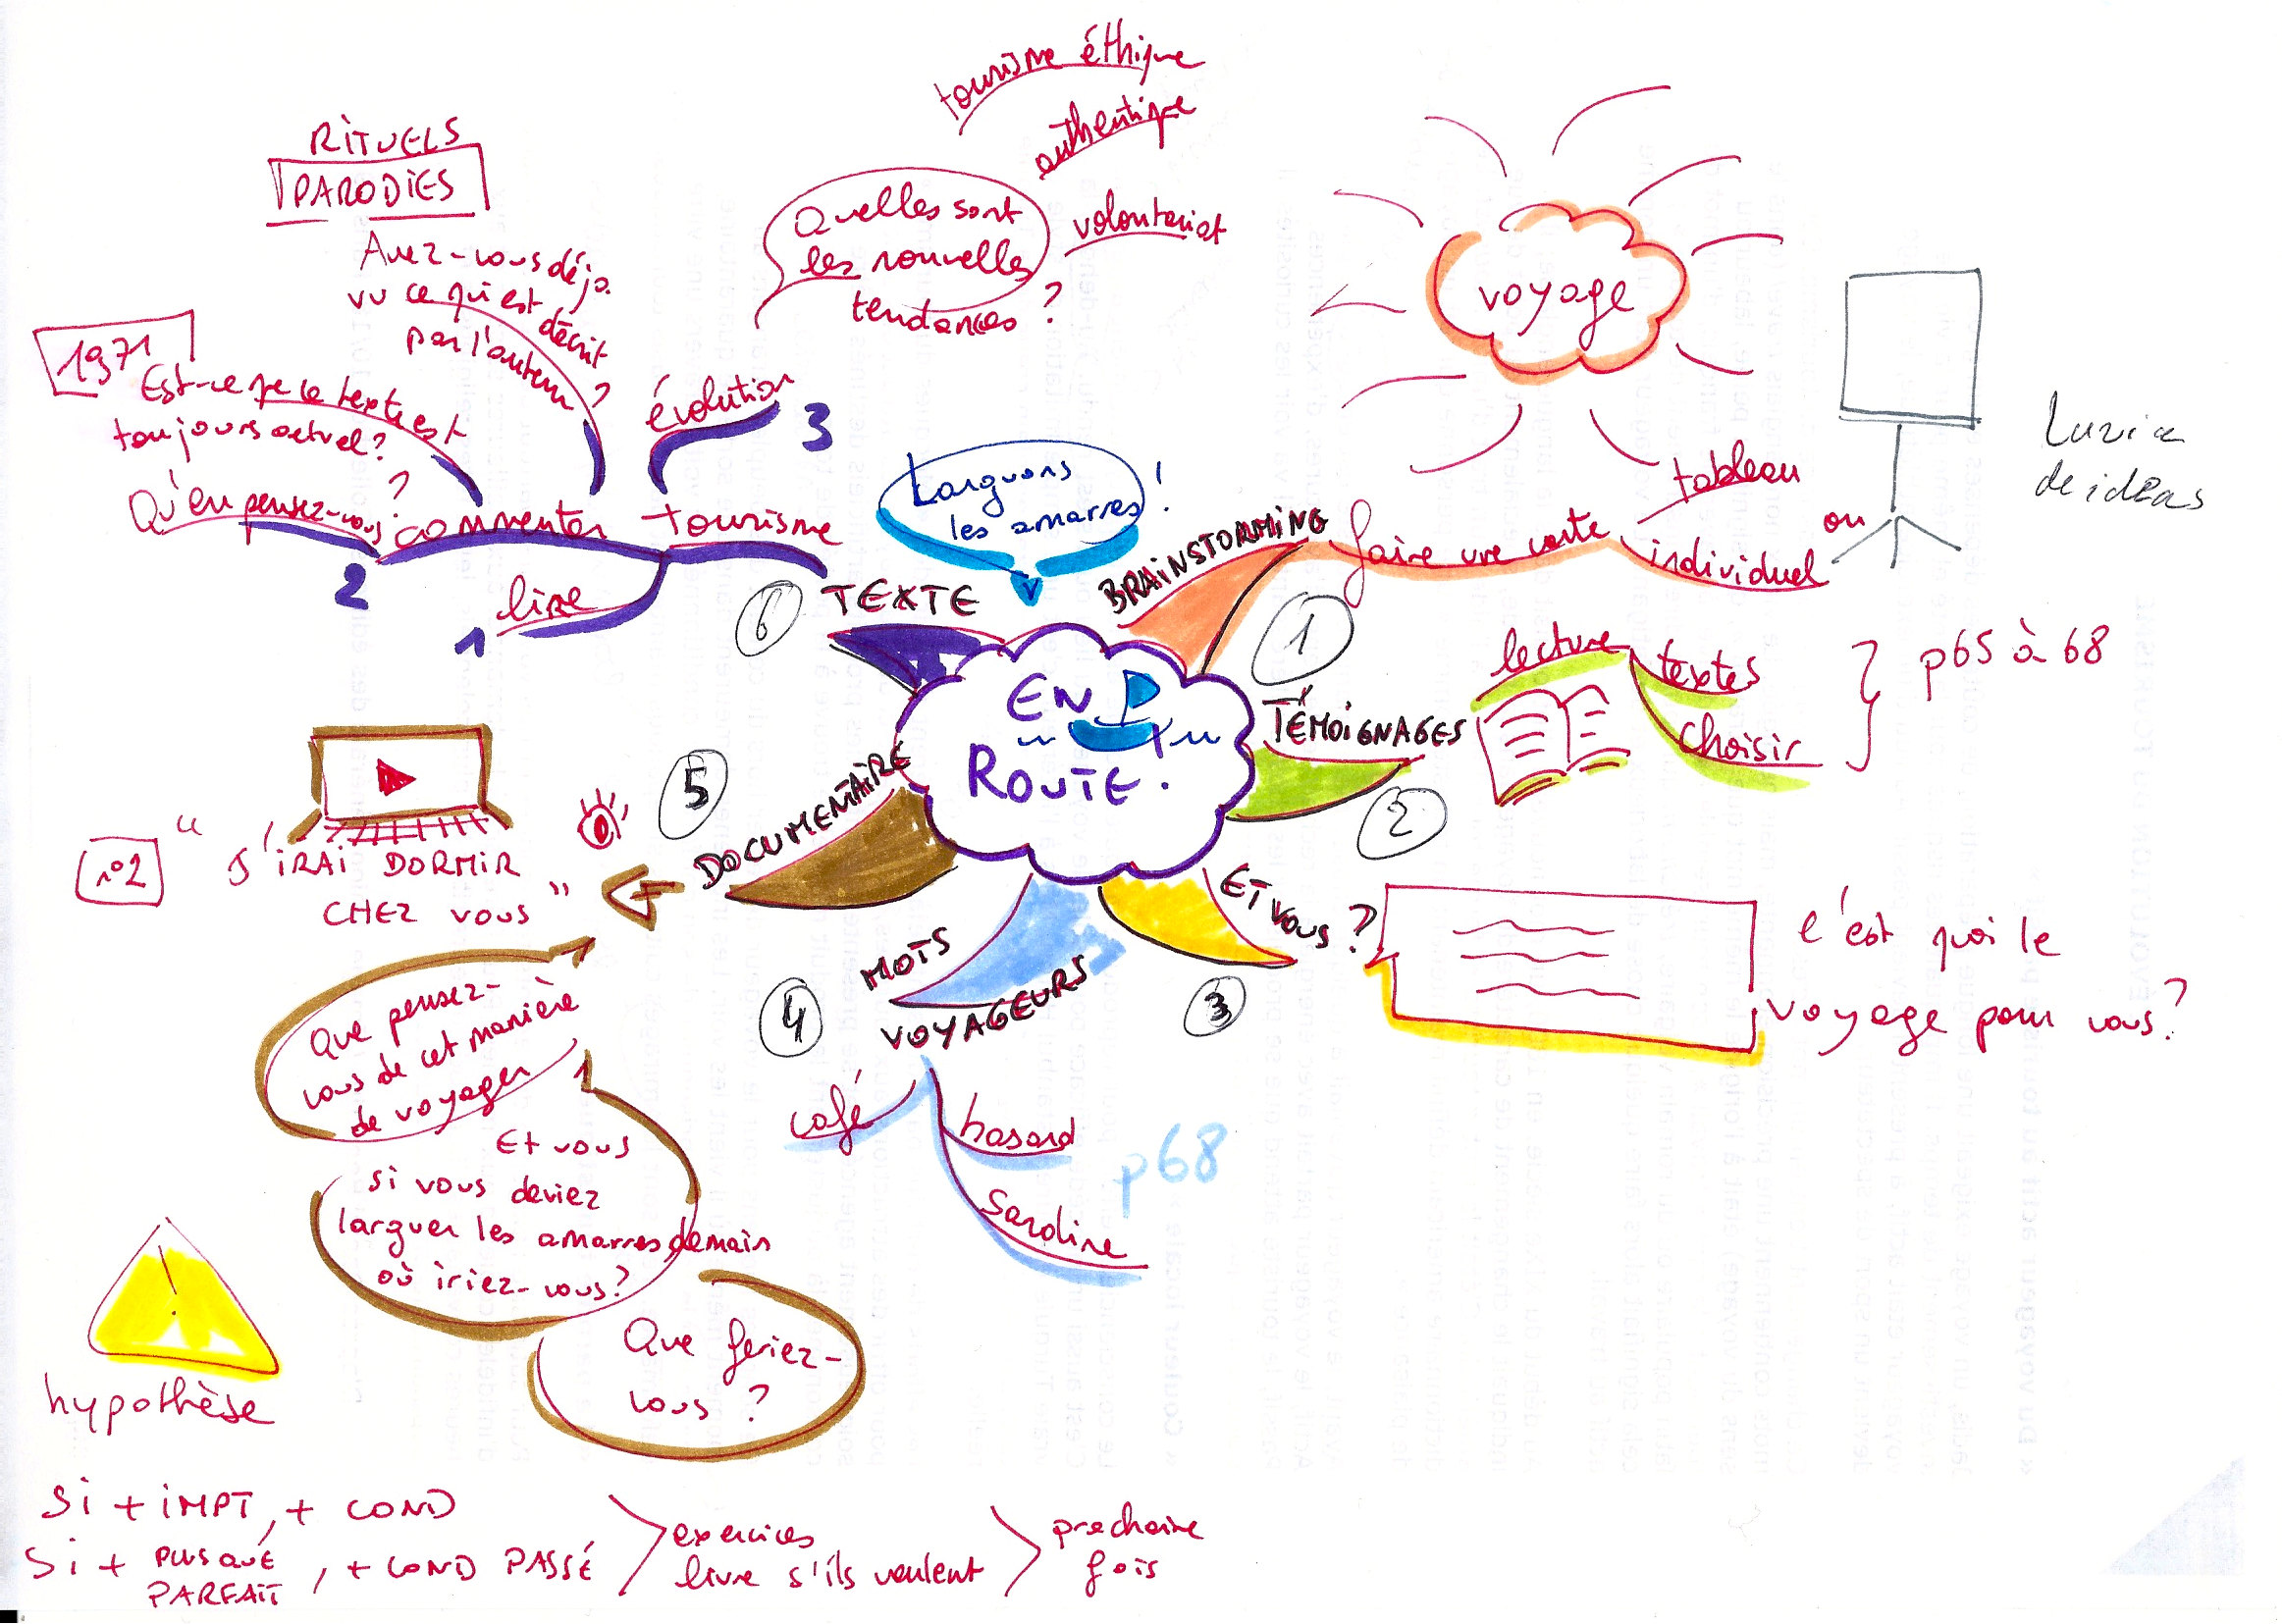 EN
ROUTE.
Larguons
les amarres !
BRAINSTORMING
1
faire une carte
tableau
ou
individuel
voyage
TÉMOIGNAGES
2
lecture
textes
choisir
p65 à 68
ET VOUS ?
3
c'est quoi le
voyage pour vous ?
MOTS
VOYAGEURS
4
café
hasard
Sardine
p68
DOCUMENTAIRE
5
n°2
" J'IRAI DORMIR
CHEZ VOUS "
Que pensez-
vous de cet manière
de voyager
Et vous
si vous deviez
larguer les amarres demain
où iriez-vous ?
Que feriez-
vous ?
hypothèse
Si + IMPT, + COND
Si + PLUS QUE
PARFAIT, + COND PASSÉ
exercices
livre s'ils veulent
prochaine
fois
TEXTE
6
lire
1
commenter
2
Qu'en pensez-vous ?
1971
Est-ce que ce texte est
toujours actuel ?
Avez-vous déjà
vu ce qui est décrit
par l'auteur ?
RITUELS
PARODIES
tourisme
évolution
3
Quelles sont
les nouvelles
tendances ?
tourisme éthique
authentique
volontariat
de ideas